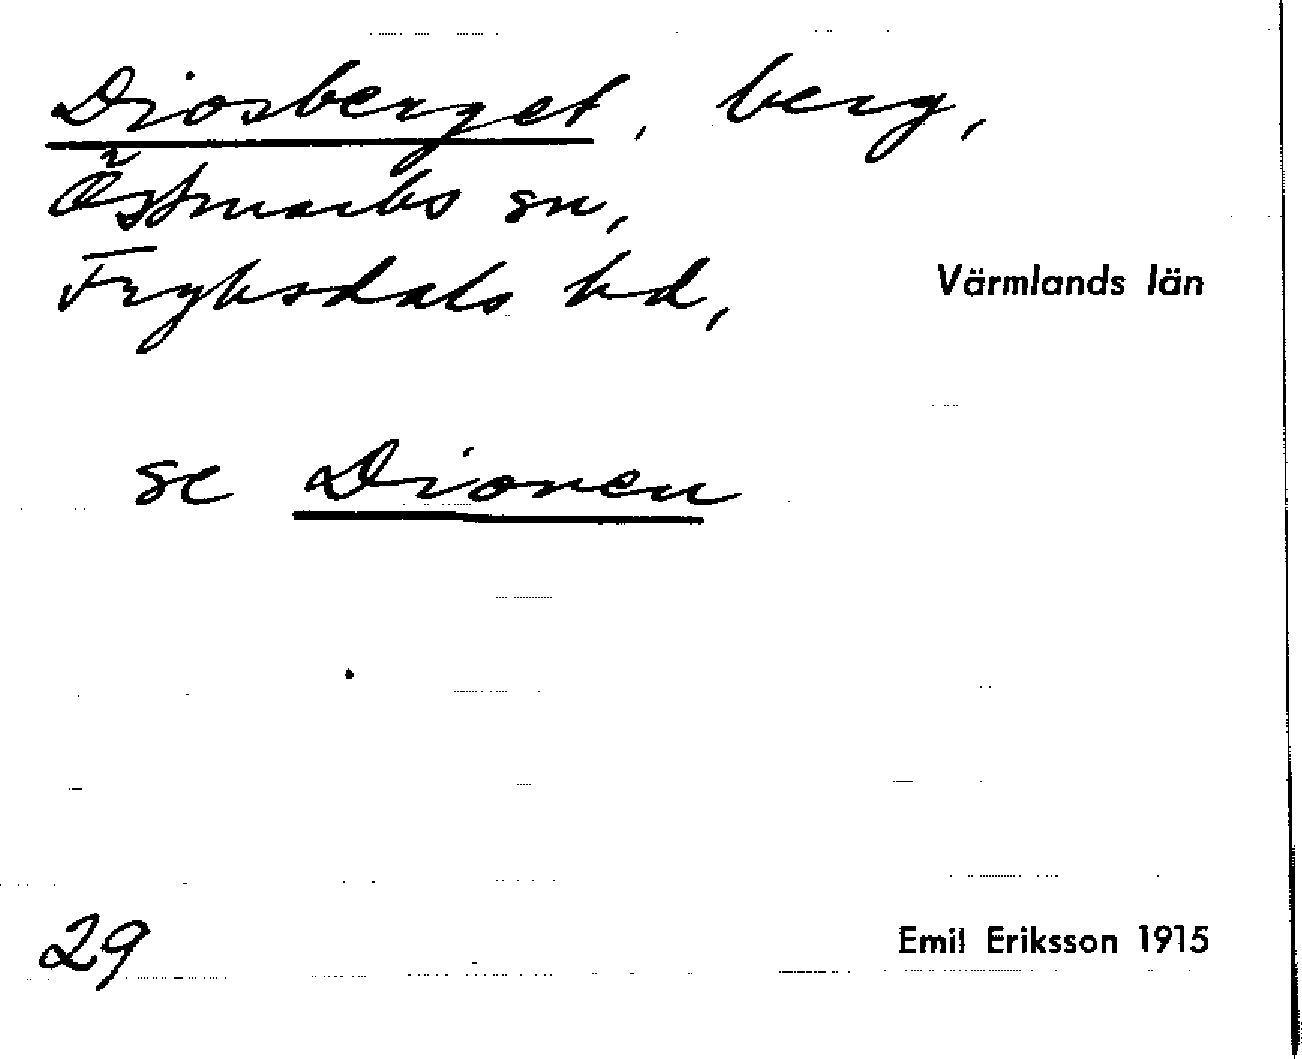 Diosberget, berg,
Östmarks sn,
Fryksdals hd,
Värmlands län
se Dionen
29
Emil Eriksson 1915